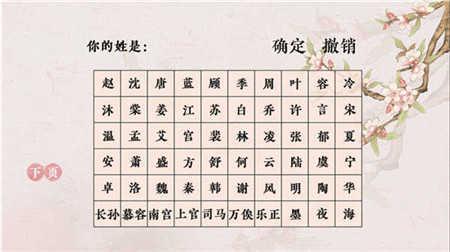 你的姓是：
确定 撤销
赵 沈 唐 蓝 顾 季 周 叶 容 冷
沐 棠 姜 江 苏 白 乔 许 言 宋
温 孟 艾 宫 裴 林 凌 张 郁 夏
安 萧 盛 方 舒 何 云 陆 虞 宁
卓 洛 魏 秦 韩 谢 风 明 陶 华
长孙 慕容 南宫 上官 司马 万俟 乐正 墨 夜 海
下页